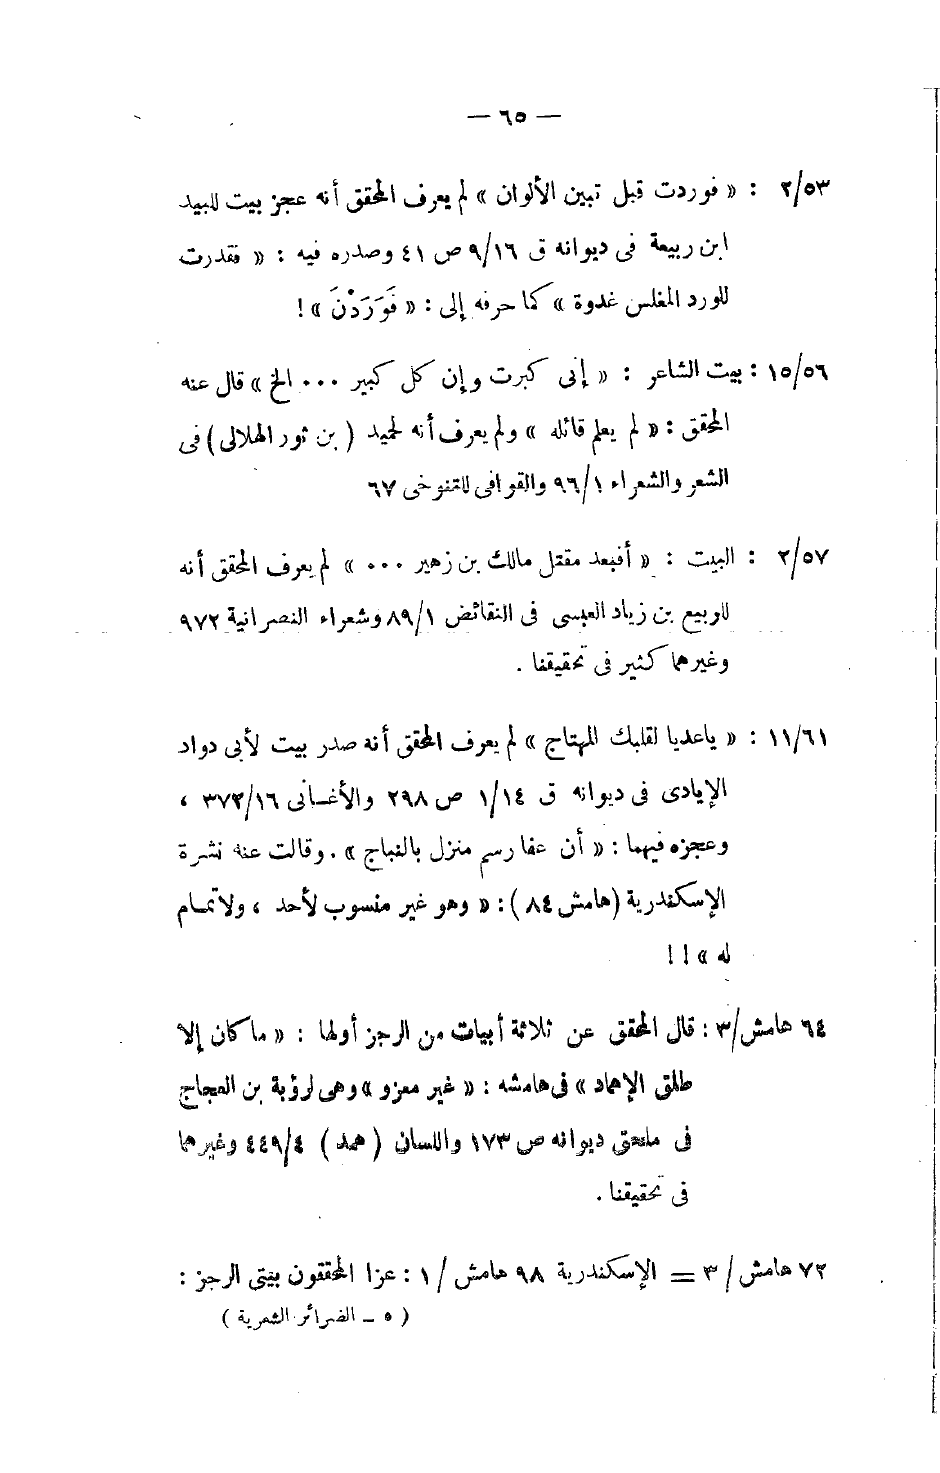 — ٦٥ —
٢/٥٣ : « فوردت قبل تبين الألوان » لم يعرف المحقق أنه عجز بيت للبيد
ابن ربيعة فى ديوانه ق ٩/١٦ ص ٤١ وصدره فيه : « فقدرت
للورد المغلس غدوة » كما حرفه إلى : « فَوَرَدْنَ » !
١٥/٥٦ : بيت الشاعر : « إنى كبرت وإن كل كبير ... الخ » قال عنه
المحقق : « لم يعلم قائله » ولم يعرف أنه لحميد ( بن ثور الهلالى ) فى
الشعر والشعراء ٩٦/١ والقوافى للتنوخى ٦٧
٢/٥٧ : البيت : « أفبعد مقتل مالك بن زهير ... » لم يعرف المحقق أنه
للربيع بن زياد العبسى فى النقائض ٨٩/١ وشعراء النصرانية ٩٧٢
وغيرهما كثير فى تحقيقنا .
١١/٦١ : « ياعديا لقلبك المهتاج » لم يعرف المحقق أنه صدر بيت لأبى دواد
الإيادى فى ديوانه ق ١/١٤ ص ٢٩٨ والأغانى ٣٧٣/١٦ ،
وعجزه فيهما : « أن عفا رسم منزل بالنباج » . وقالت عنه نشرة
الإسكندرية (هامش ٨٤) : « وهو غير منسوب لأحد ، ولاتمام
له » ! !
٦٤ هامش/٣ : قال المحقق عن ثلاثة أبيات من الرجز أولها : « ما كان إلا
طلق الإهماد » فى هامشه : « غير معزو » وهى لرؤبة بن العجاج
فى ملحق ديوانه ص ١٧٣ واللسان ( همد ) ٤٤٩/٤ وغيرهما
فى تحقيقنا .
٧٢ هامش/ ٣ = الإسكندرية ٩٨ هامش /١ : عزا المحققون بيتى الرجز :
( ٥ ــ الضرائر الشعرية )